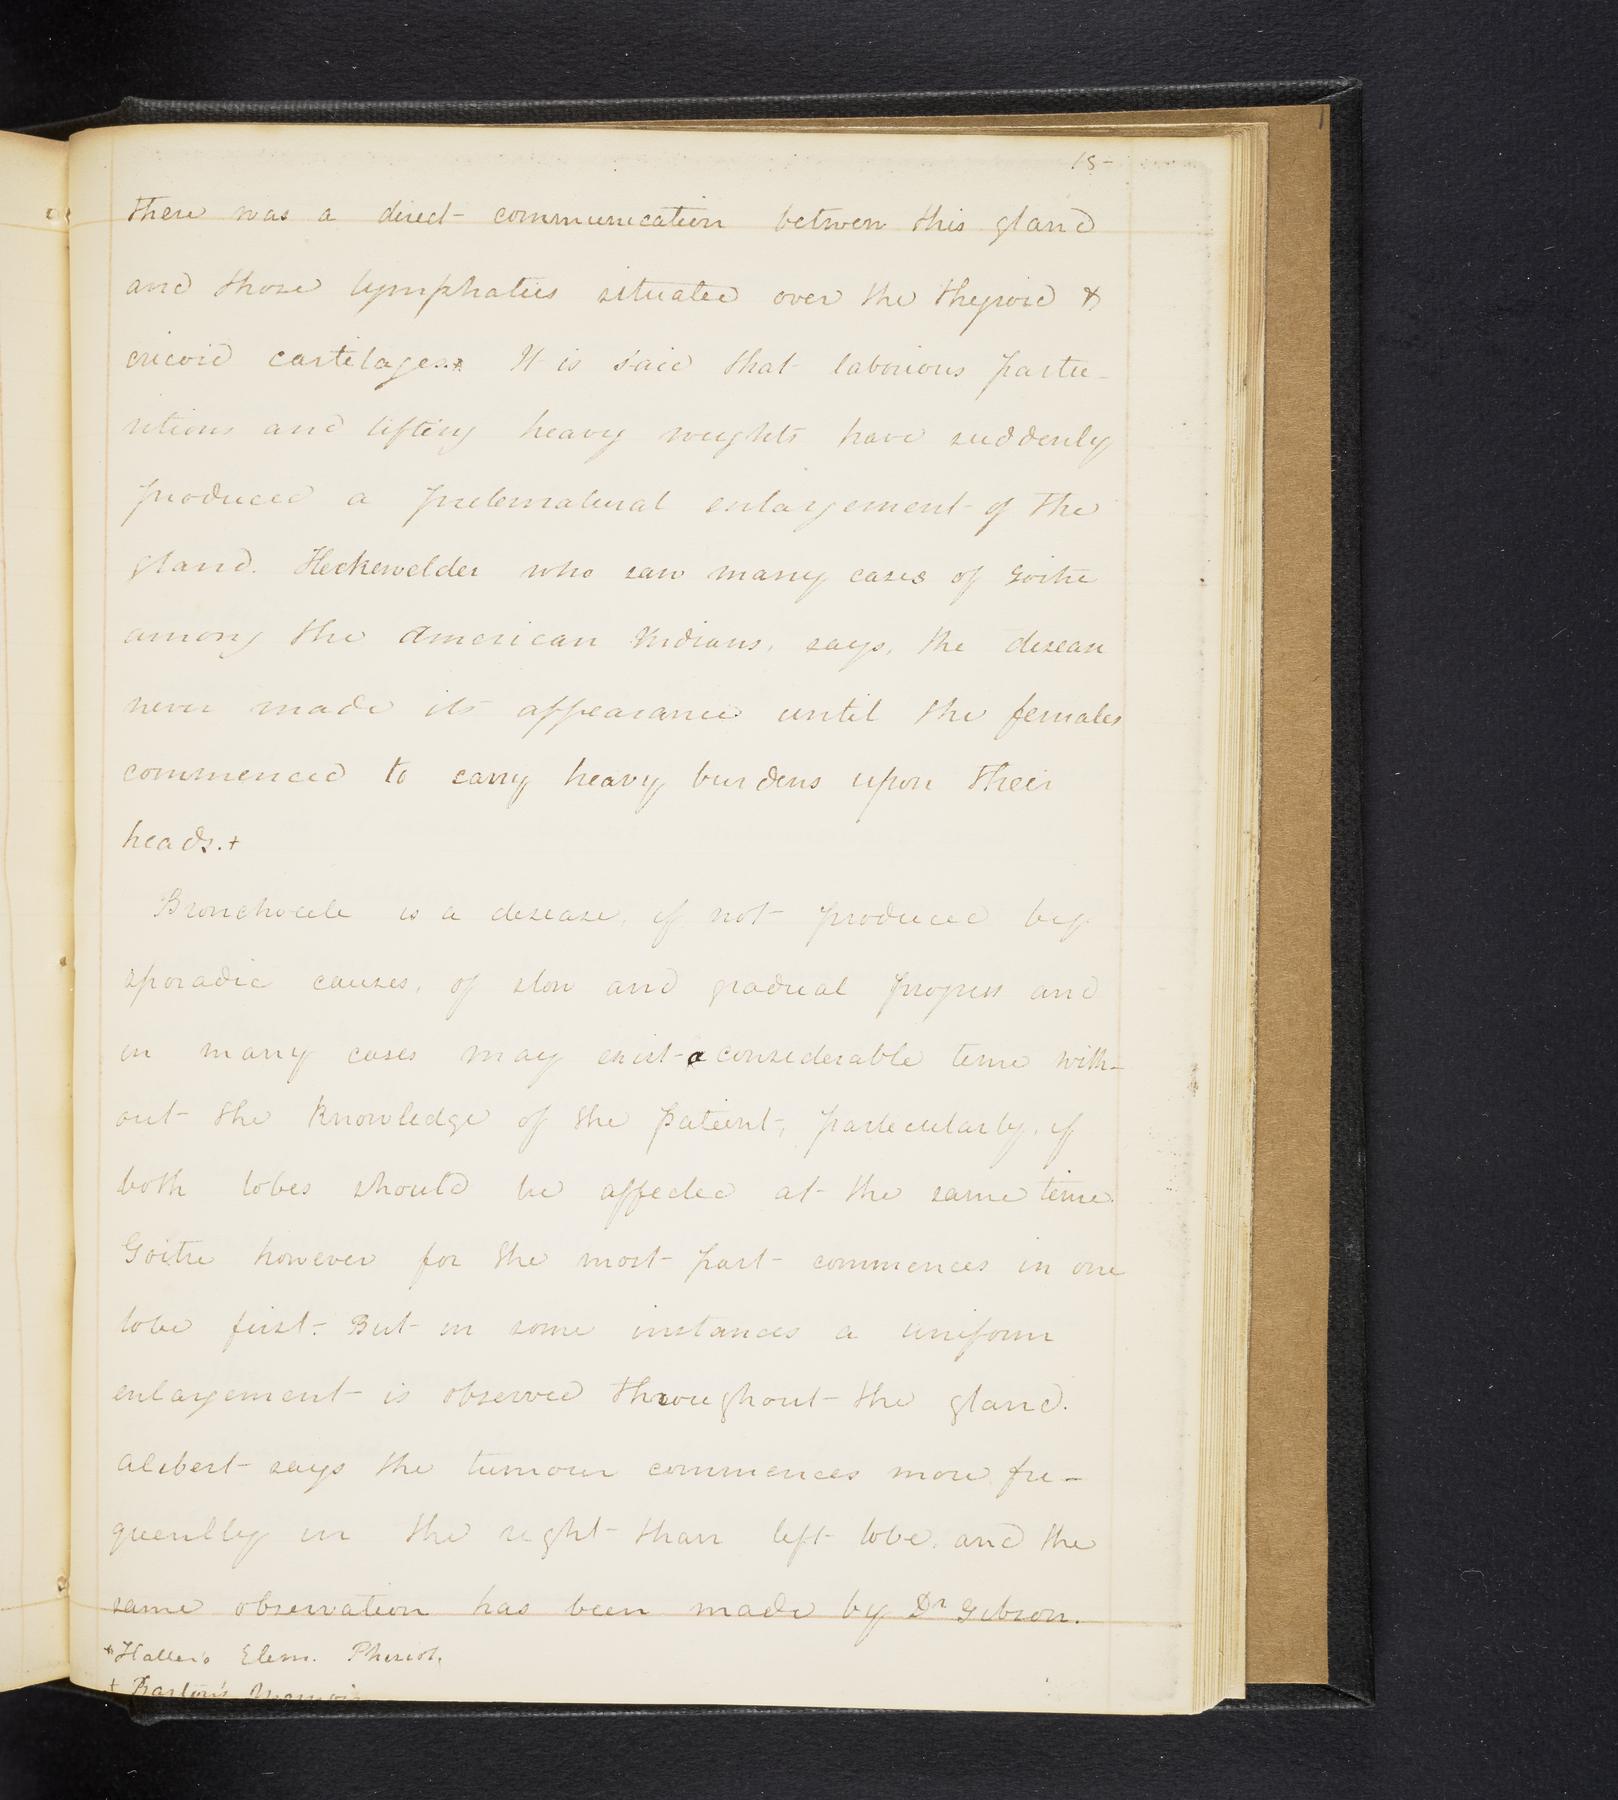 15-
there was a direct communication between this gland
and those lymphatics situated over the thyroid &
cricoid cartilages.* It is said that laborious partu-
ritions and lifting heavy weights have suddenly
produced a preternatural enlargement of the
gland. Heckewelder who saw many cases of Goitre
among the American Indians, says, the disease
never made its appearance until the females
commenced to carry heavy burdens upon their
heads.+
Bronchocele is a disease, if not produced by
sporadic causes, of slow and gradual progress and
in many cases may exist a considerable time with-
out the knowledge of the patient, particularly, if
both lobes should be affected at the same time.
Goitre however for the most part commences in one
lobe first. But in some instances a uniform
enlargement is observed throughout the gland.
Alibert says the tumour commences more fre-
quently in the right than left lobe, and the
same observation has been made by Dr Gibson.
*Haller's Elem. Phisiol.
+ Barton's Memoir